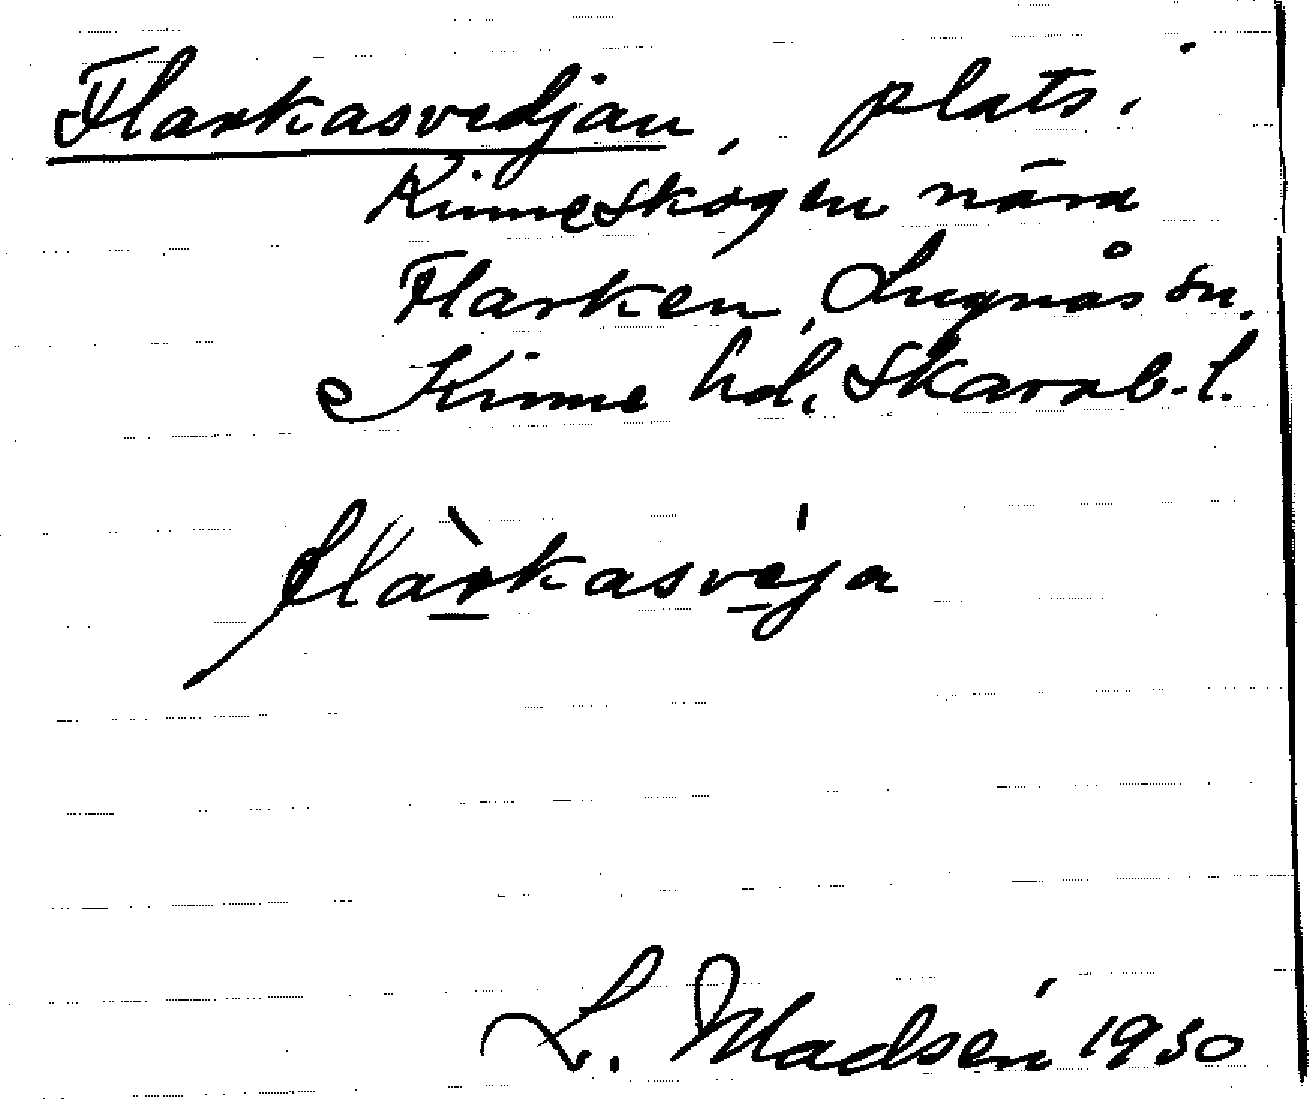 Flarkasvedjan, plats i
Kinneskogen nära
Flarken, Lugnås sn.
Kinne hd, Skarab. l.
flàrkasve̱ja
L. Madsén 1930